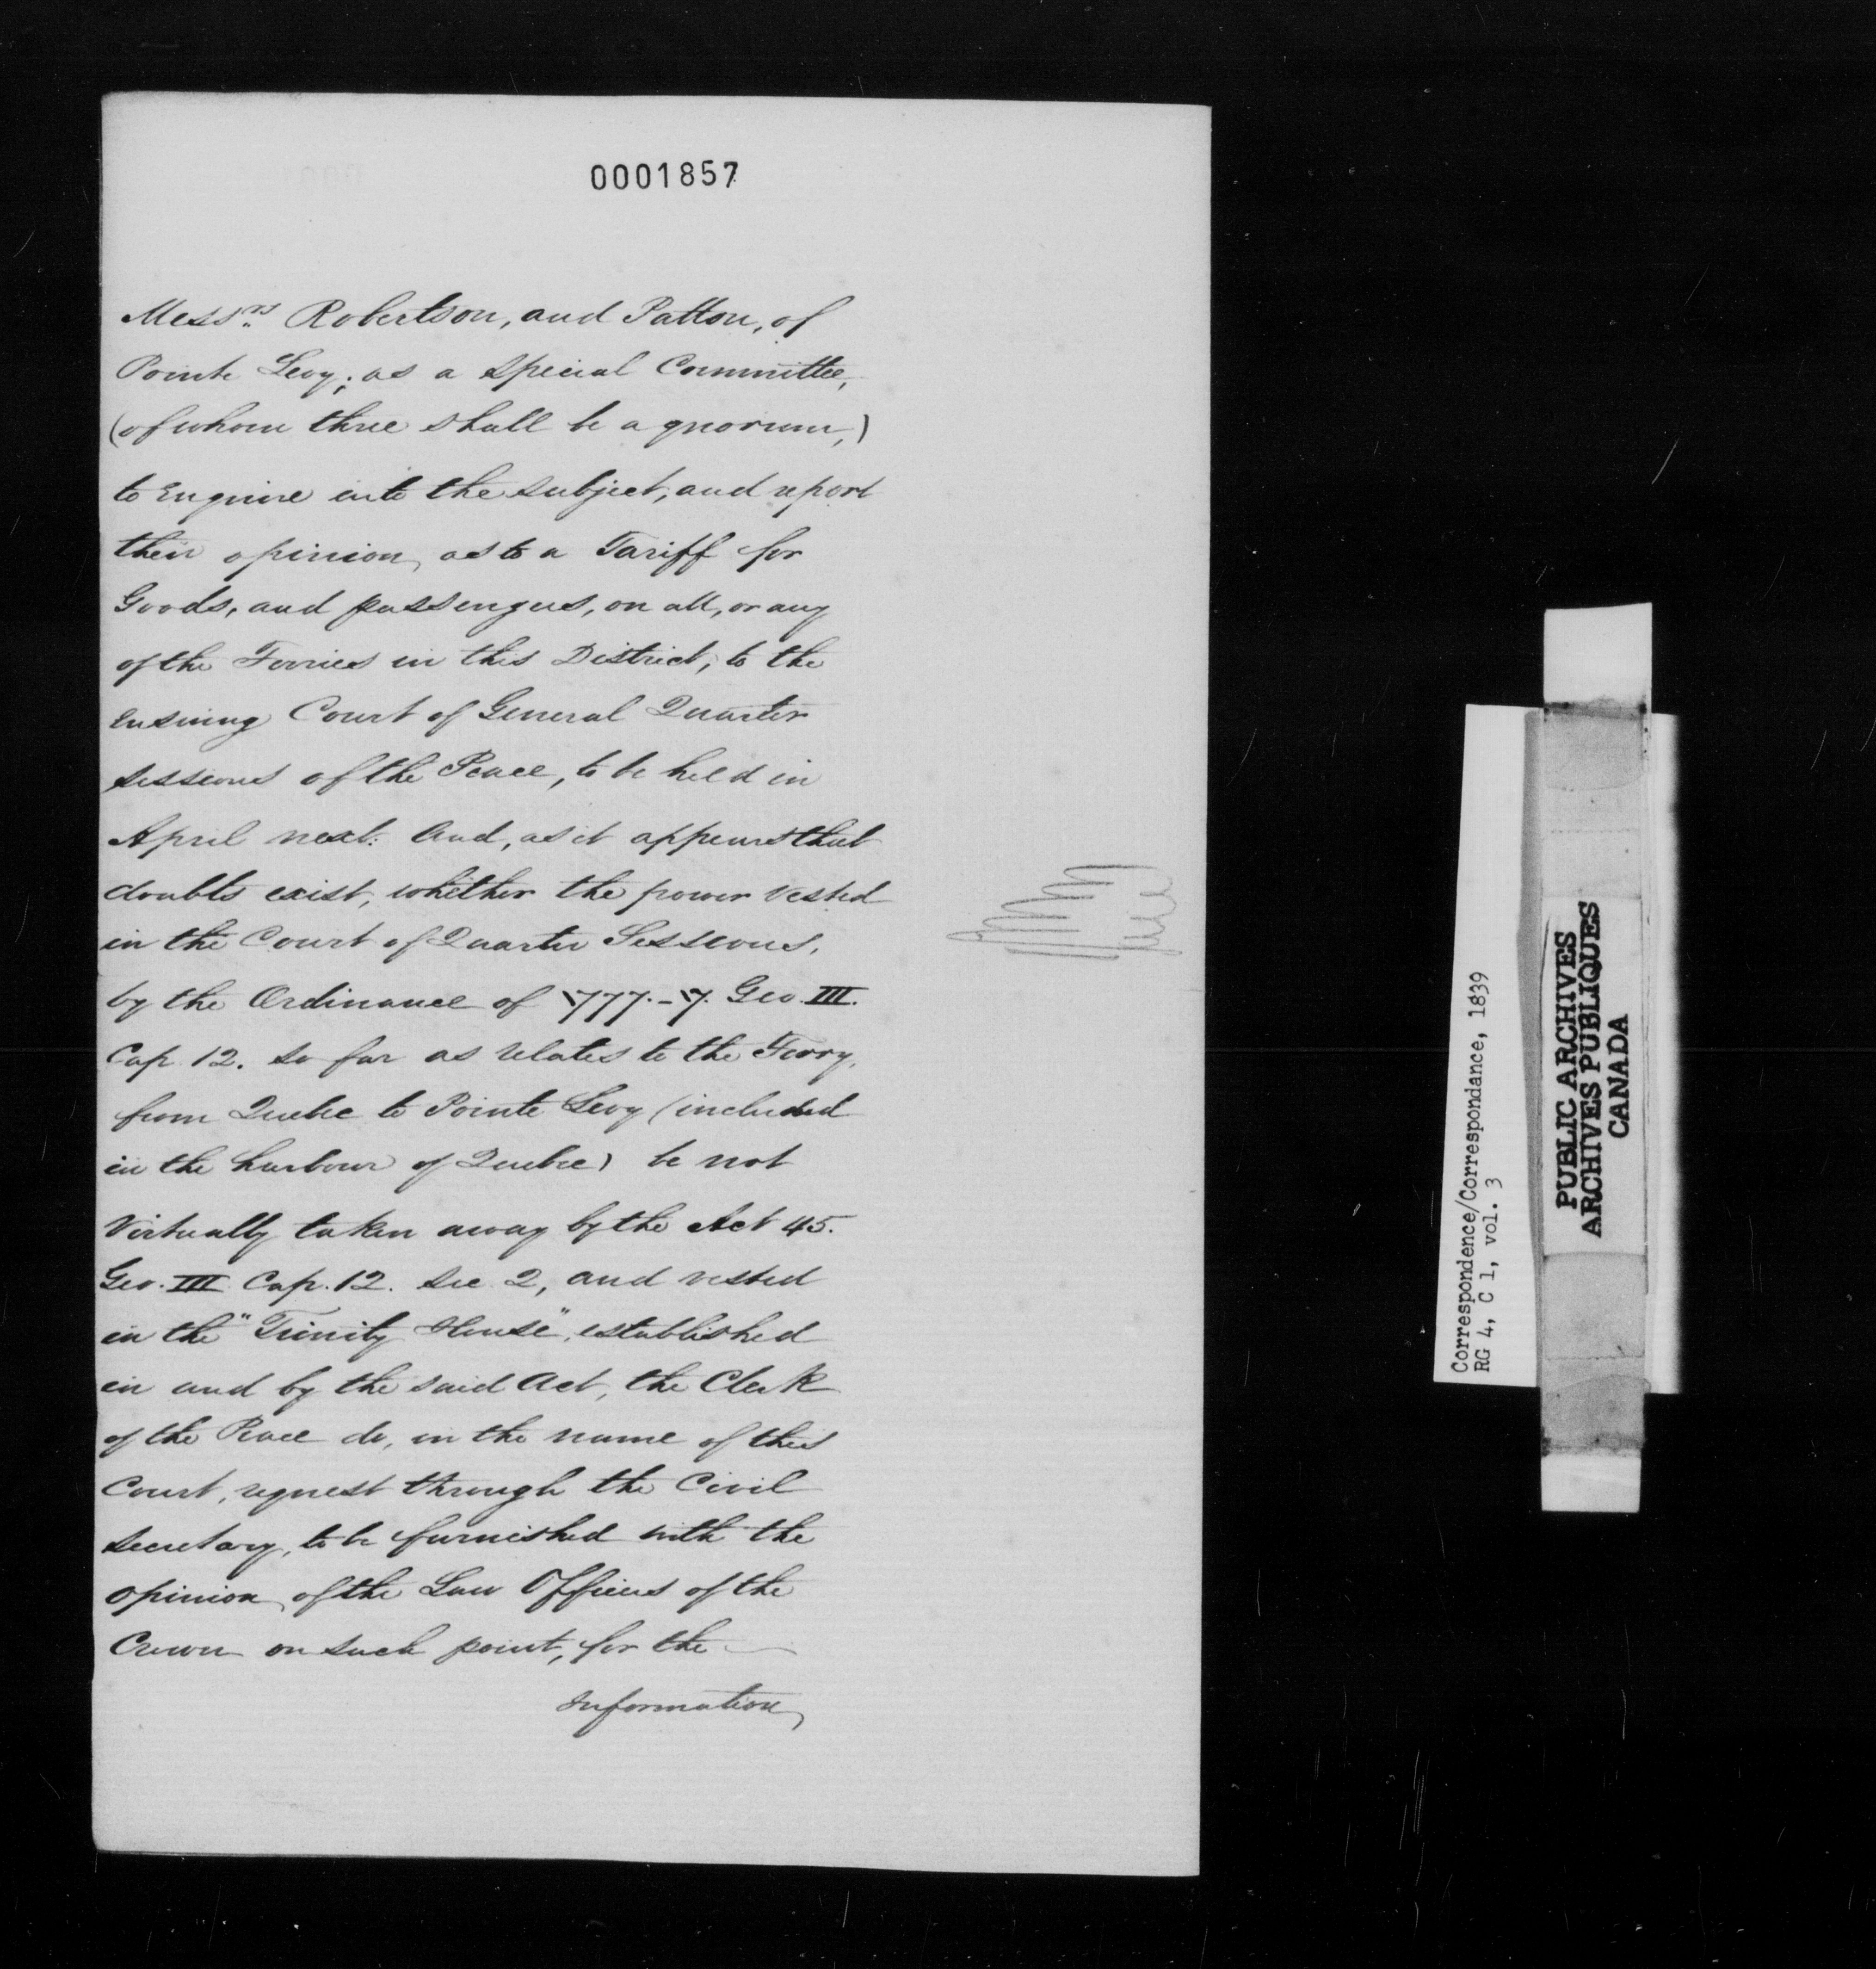 0001857
Messrs. Robertson, and Patton, of
Pointe Levy; as a special Committee,
(of whom three shall be a quorum,)
to Enquire into the subject, and report
their opinion, as to a Tariff for
Goods, and passengers, on all, or any
of the Ferries in this District, to the
Ensuing Court of General Quarter
Sessions of the Peace, to be held in
April next: And, as it appears that
doubts exist, whether the power vested
in the Court of Quarter Sessions,
by the Ordinance of 1777.-17. Geo. III.
Cap. 12. so far as relates to the Ferry,
from Quebec to Pointe Levy (included
in the harbour of Quebec) be not
Virtually taken away by the Act 45.
Geo. III Cap. 12. Sec 2, and vested
in the "Trinity House", established
in and by the said Act, the Clerk
of the Peace do, in the name of this
Court, request through the Civil
Secretary, to be furnished with the
opinion of the Law Officers of the
Crown on such point, for the
Information
Correspondence/Correspondance, 1839
RG 4, C 1, vol. 3
PUBLIC ARCHIVES
ARCHIVES PUBLIQUES
CANADA